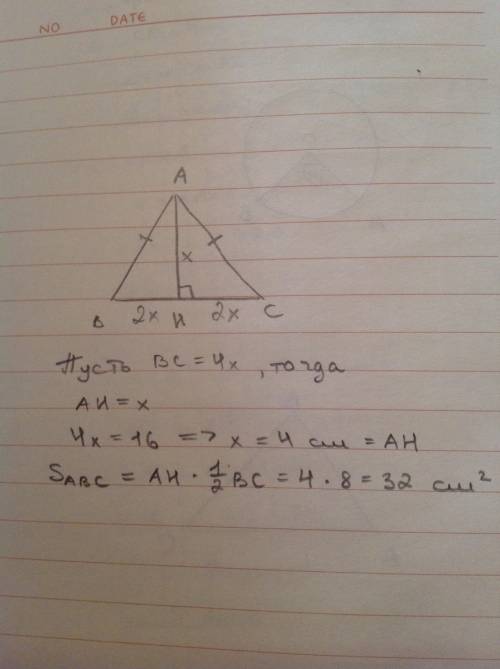 NO DATE
A
x
B 2x H 2x C
Пусть BC = 4x, тогда
AH = x
4x = 16 => x = 4 см = AH
S_ABC = AH · 1/2 BC = 4 · 8 = 32 см²